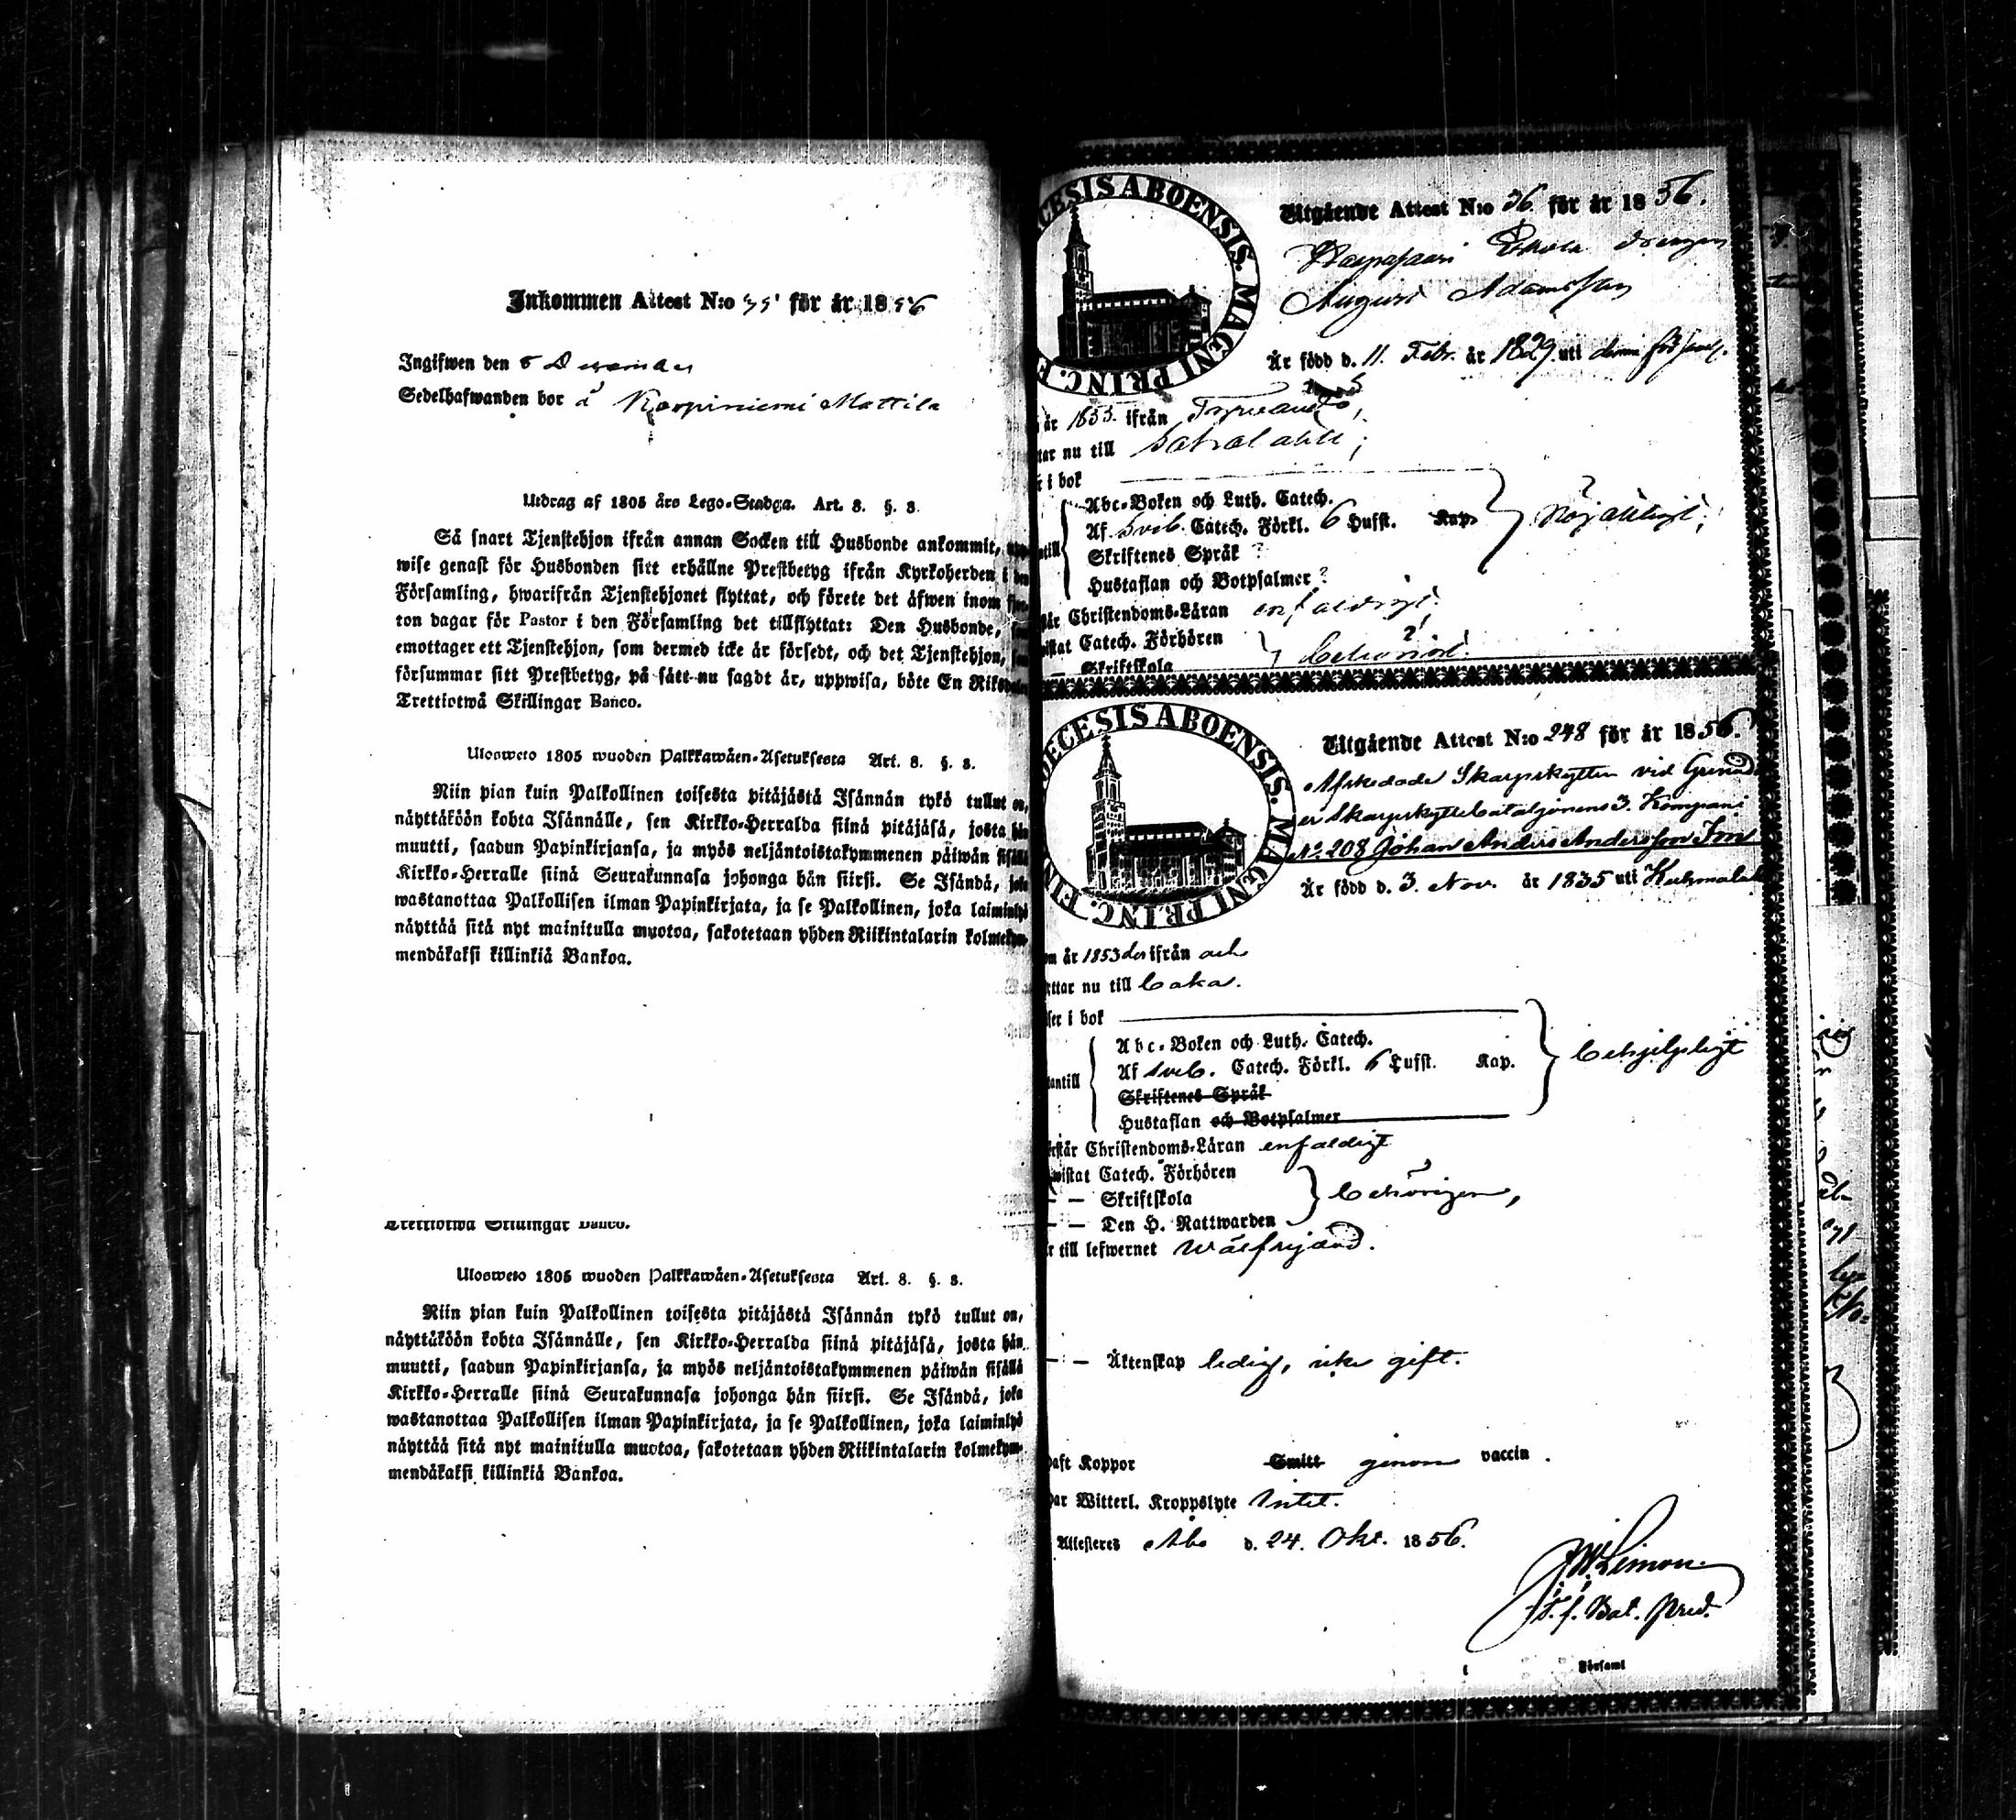 Inkommen Attest N:o 35 för år 1856
Ingifwen den 8 December
Sedelhafwanden bor å Korpiniemi Mattila
Utdrag af 1805 års Lego-Stadga. Art. 8. §. 8.
Så snart Tjenstehjon ifrån annan Socken till Husbonde ankommit,
wise genast för Husbonden sitt erhållne Prestbetyg ifrån Kyrkoherden i den
Församling, hwarifrån Tjenstehjonet flyttat, och förete det äfwen inom
ton dagar för Pastor i den Församling det tillflyttat: Den Husbonde,
emottager ett Tjenstehjon, som dermed icke är försedt, och det Tjenstehjon,
försummar sitt Prestbetyg, på sätt nu sagdt är, uppwisa, böte En Riksdaler
Trettiotwå Skillingar Banco.
Ulosweto 1805 wuoden Palkkawäen-Asetuksesta Art. 8. §. 8.
Niin pian kuin Palkollinen toisesta pitäjästä Isännän tykö tullut on,
näyttäköön kohta Isännälle, sen Kirkko-Herralda siinä pitäjäsä, josta hän
muutti, saadun Papinkirjansa, ja myös neljäntoistakymmenen päiwän sisällä
Kirkko-Herralle siinä Seurakunnasa johonga hän siirsi. Se Isändä, joka
wastanottaa Palkollisen ilman Papinkirjata, ja se Palkollinen, joka laiminlyö
näyttää sitä nyt mainitulla muotoa, sakotetaan yhden Riikintalarin kolmekym-
mendäkaksi killinkiä Bankoa.
Trettiotwå Skillingar Banco.
Ulosweto 1805 wuoden Palkkawäen-Asetuksesta Art. 8. §. 8.
Niin pian kuin Palkollinen toisesta pitäjästä Isännän tykö tullut on,
näyttäköön kohta Isännälle, sen Kirkko-Herralda siinä pitäjäsä, josta hän
muutti, saadun Papinkirjansa, ja myös neljäntoistakymmenen päiwän sisällä
Kirkko-Herralle siinä Seurakunnasa johonga hän siirsi. Se Isändä, joka
wastanottaa Palkollisen ilman Papinkirjata, ja se Palkollinen, joka laiminlyö
näyttää sitä nyt mainitulla muotoa, sakotetaan yhden Riikintalarin kolmekym-
mendäkaksi killinkiä Bankoa.
CESIS ABOENSIS. MAGNI PRINC. F
Utgående Attest N:o 36 för år 1856.
drengen
August Adamsson
Är född d. 11. Febr. år 1829. uti denna förs.
år 1855. ifrån
tar nu till
i bok
Abc-Boken och Luth. Catech.
Af Sveb. Catech. Förkl. 6 Hufst. Kap. nöjaktigt;
Skriftenes Språk ?
Hustaflan och Botpsalmer ?
Christendoms-Läran enfaldigt.
istat Catech. Förhören
Skriftskola
DECESIS ABOENSIS. MAGNI PRINC. FIN
Utgående Attest N:o 248 för år 1856.
Afskedade Skarpskytten vid Grenadi-
er Skarpskyttebataljonens 3. Kompani
N:o 208 Johan Anders Andersson Frni
Är född d. 3. Nov. år 1835 uti Kuhmalak
om år 1853 der ifrån och
yttar nu till baka.
ser i bok
antill Abc-Boken och Luth. Catech.
Af Sveb. Catech. Förkl. 6 Hufst. Kap. behjelpligt
Skriftenes Språk
Hustaflan och Botpsalmer
rstår Christendoms-Läran enfaldigt
wistat Catech. Förhören
— — Skriftskola behörigen,
— — Den H. Nattwarden
r till lefwernet wälfrejdad.
— — Äktenskap ledig, icke gift.
haft Koppor Smitt genom vaccin.
har Witterl. Kroppslyte intet.
Attesteres Åbo d. 24. Okt. 1856.
Limon
T. f. Bat. Pred.
Församl